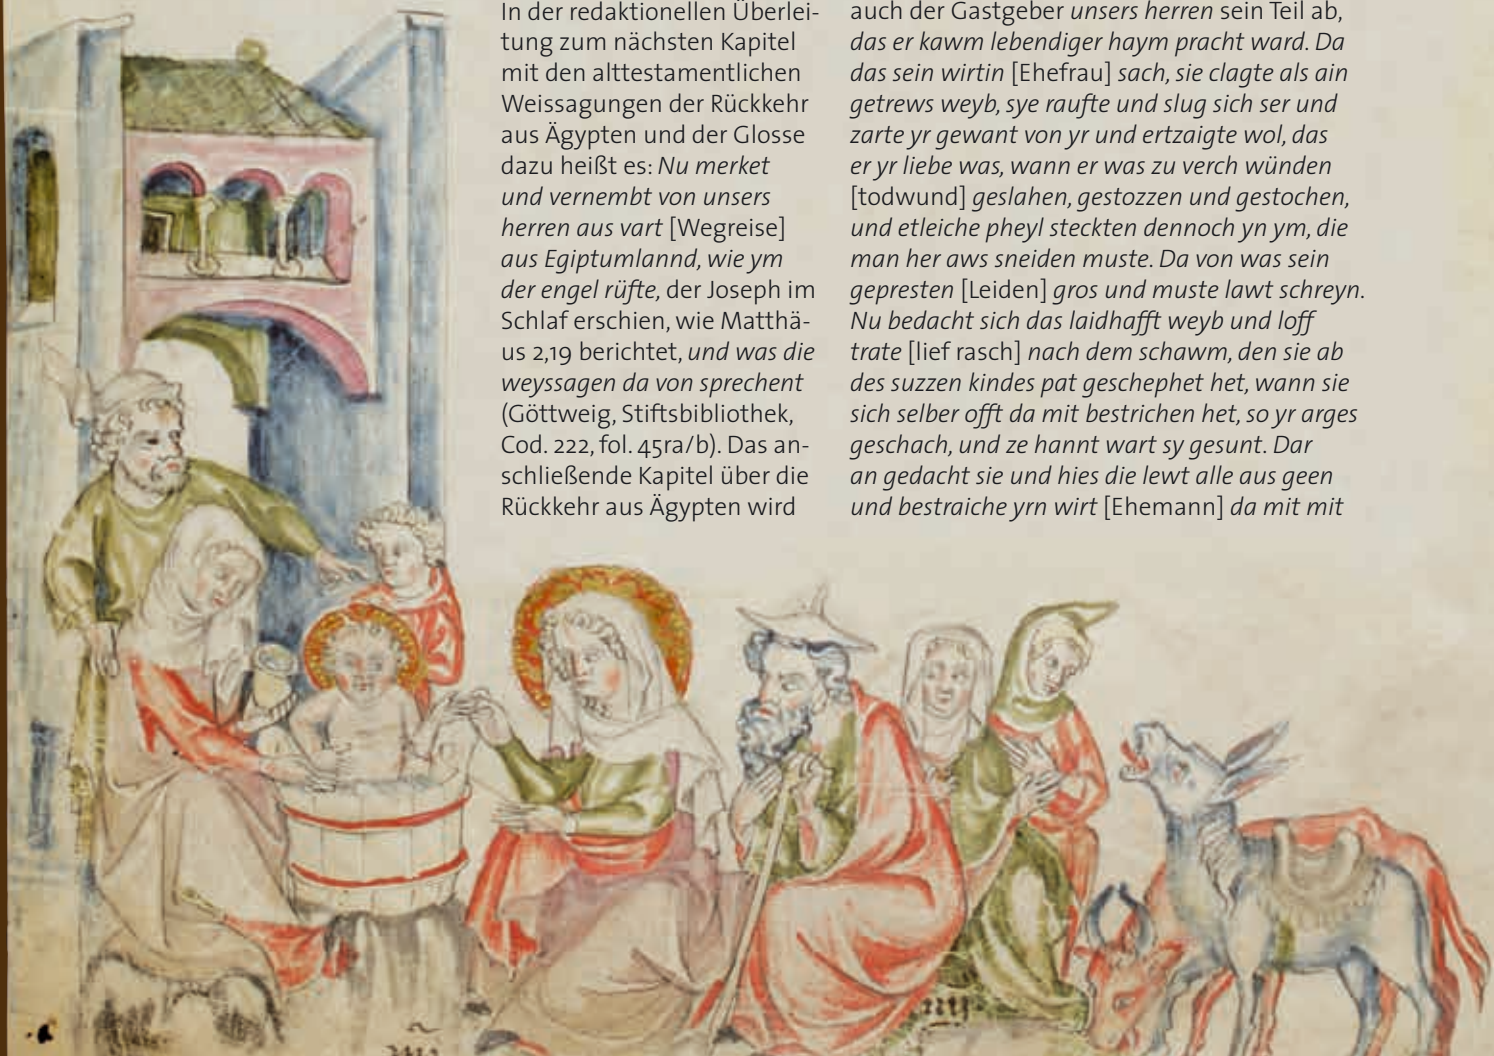 In der redaktionellen Überlei-
tung zum nächsten Kapitel
mit den alttestamentlichen
Weissagungen der Rückkehr
aus Ägypten und der Glosse
dazu heißt es: Nu merket
und vernembt von unsers
herren aus vart [Wegreise]
aus Egiptumlannd, wie ym
der engel rüfte, der Joseph im
Schlaf erschien, wie Matthä-
us 2,19 berichtet, und was die
weyssagen da von sprechent
(Göttweig, Stiftsbibliothek,
Cod. 222, fol. 45ra/b). Das an-
schließende Kapitel über die
Rückkehr aus Ägypten wird
auch der Gastgeber unsers herren sein Teil ab,
das er kawm lebendiger haym pracht ward. Da
das sein wirtin [Ehefrau] sach, sie clagte als ain
getrews weyb, sye raufte und slug sich ser und
zarte yr gewant von yr und ertzaigte wol, das
er yr liebe was, wann er was zu verch wünden
[todwund] geslahen, gestozzen und gestochen,
und etleiche pheyl steckten dennoch yn ym, die
man her aws sneiden muste. Da von was sein
gepresten [Leiden] gros und muste lawt schreyn.
Nu bedacht sich das laidhafft weyb und loff
trate [lief rasch] nach dem schawm, den sie ab
des suzzen kindes pat geschephet het, wann sie
sich selber offt da mit bestrichen het, so yr arges
geschach, und ze hannt wart sy gesunt. Dar
an gedacht sie und hies die lewt alle aus geen
und bestraiche yrn wirt [Ehemann] da mit mit